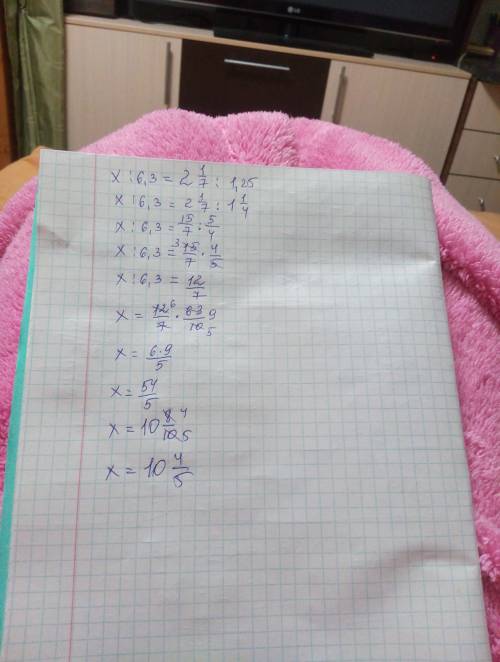 LG
x : 6,3 = 2 1/7 : 1,25
x : 6,3 = 2 1/7 : 1 1/4
x : 6,3 = 15/7 : 5/4
x : 6,3 = ³15/7 · 4/5
x : 6,3 = 12/7
x = 12⁶/7 · 63 9/10 5
x = 6·9/5
x = 54/5
x = 10 8 4/10 5
x = 10 4/5